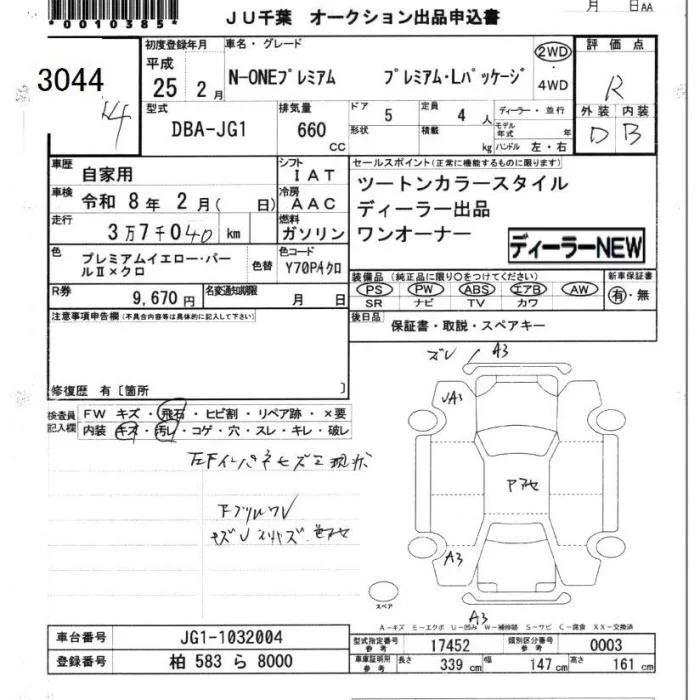 *0010385*
JU千葉 オークション出品申込書
月 日AA
3044
初度登録年月
平成
25 2 月
車名・グレード
N-ONEプレミアム プレミアム・Lパッケージ
2WD
4WD
評価点
R
外装 内装
D B
型式
DBA-JG1
排気量
660
CC
ドア
5
定員
4 人
形状
積載
kg
ディーラー・並行
モデル年式 年
ハンドル 左・右
車歴
自家用
車検
令和 8年 2月( 日)
走行
3万7千040 km
シフト
IAT
冷房
AAC
燃料
ガソリン
セールスポイント(正常に機能するものに限ります)
ツートンカラースタイル
ディーラー出品
ワンオーナー
ディーラーNEW
色
プレミアムイエロー・パー
ルⅡ×クロ
色替
色コード
Y70P4クロ
装備品 (純正品に限り○をつけてください)
PS PW ABS エアB AW
SR ナビ TV カワ
新車保証書
有・無
R券
9,670円
名変通知期限
月 日
後日品
保証書・取説・スペアキー
注意事項申告欄(不具合内容等は具体的に記入して下さい)
修復歴 有〔箇所 〕
検査員
記入欄
FW キズ・飛石・ヒビ割・リペア跡・×要
内装 キズ・汚レ・コゲ・穴・スレ・キレ・破レ
A3
A3
A3
A3
スペア
A-キズ E-エクボ U-凹み W-補修跡 S-サビ C-腐食 XX-交換済
車台番号
JG1-1032004
登録番号
柏 583 ら 8000
型式指定番号
参考
17452
類別区分番号
参考
0003
車庫証明用
参考
長さ
339 cm
幅
147 cm
高さ
161 cm